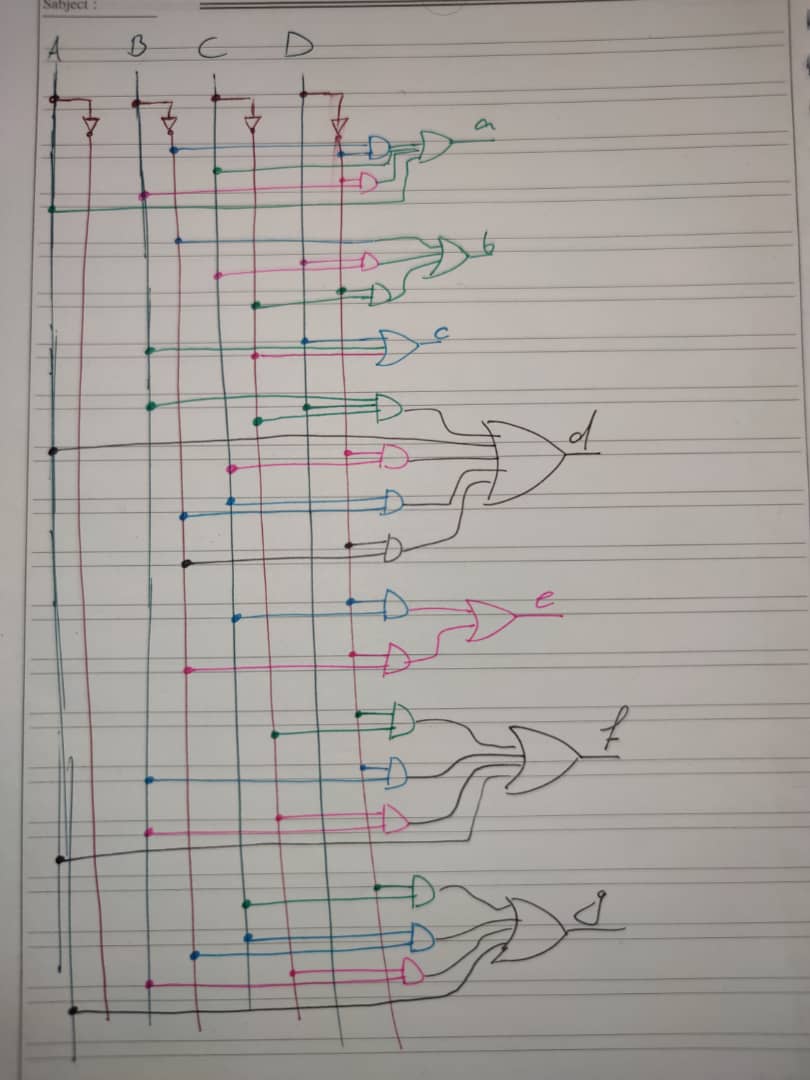 Subject :
A B C D
a
b
c
d
e
f
g